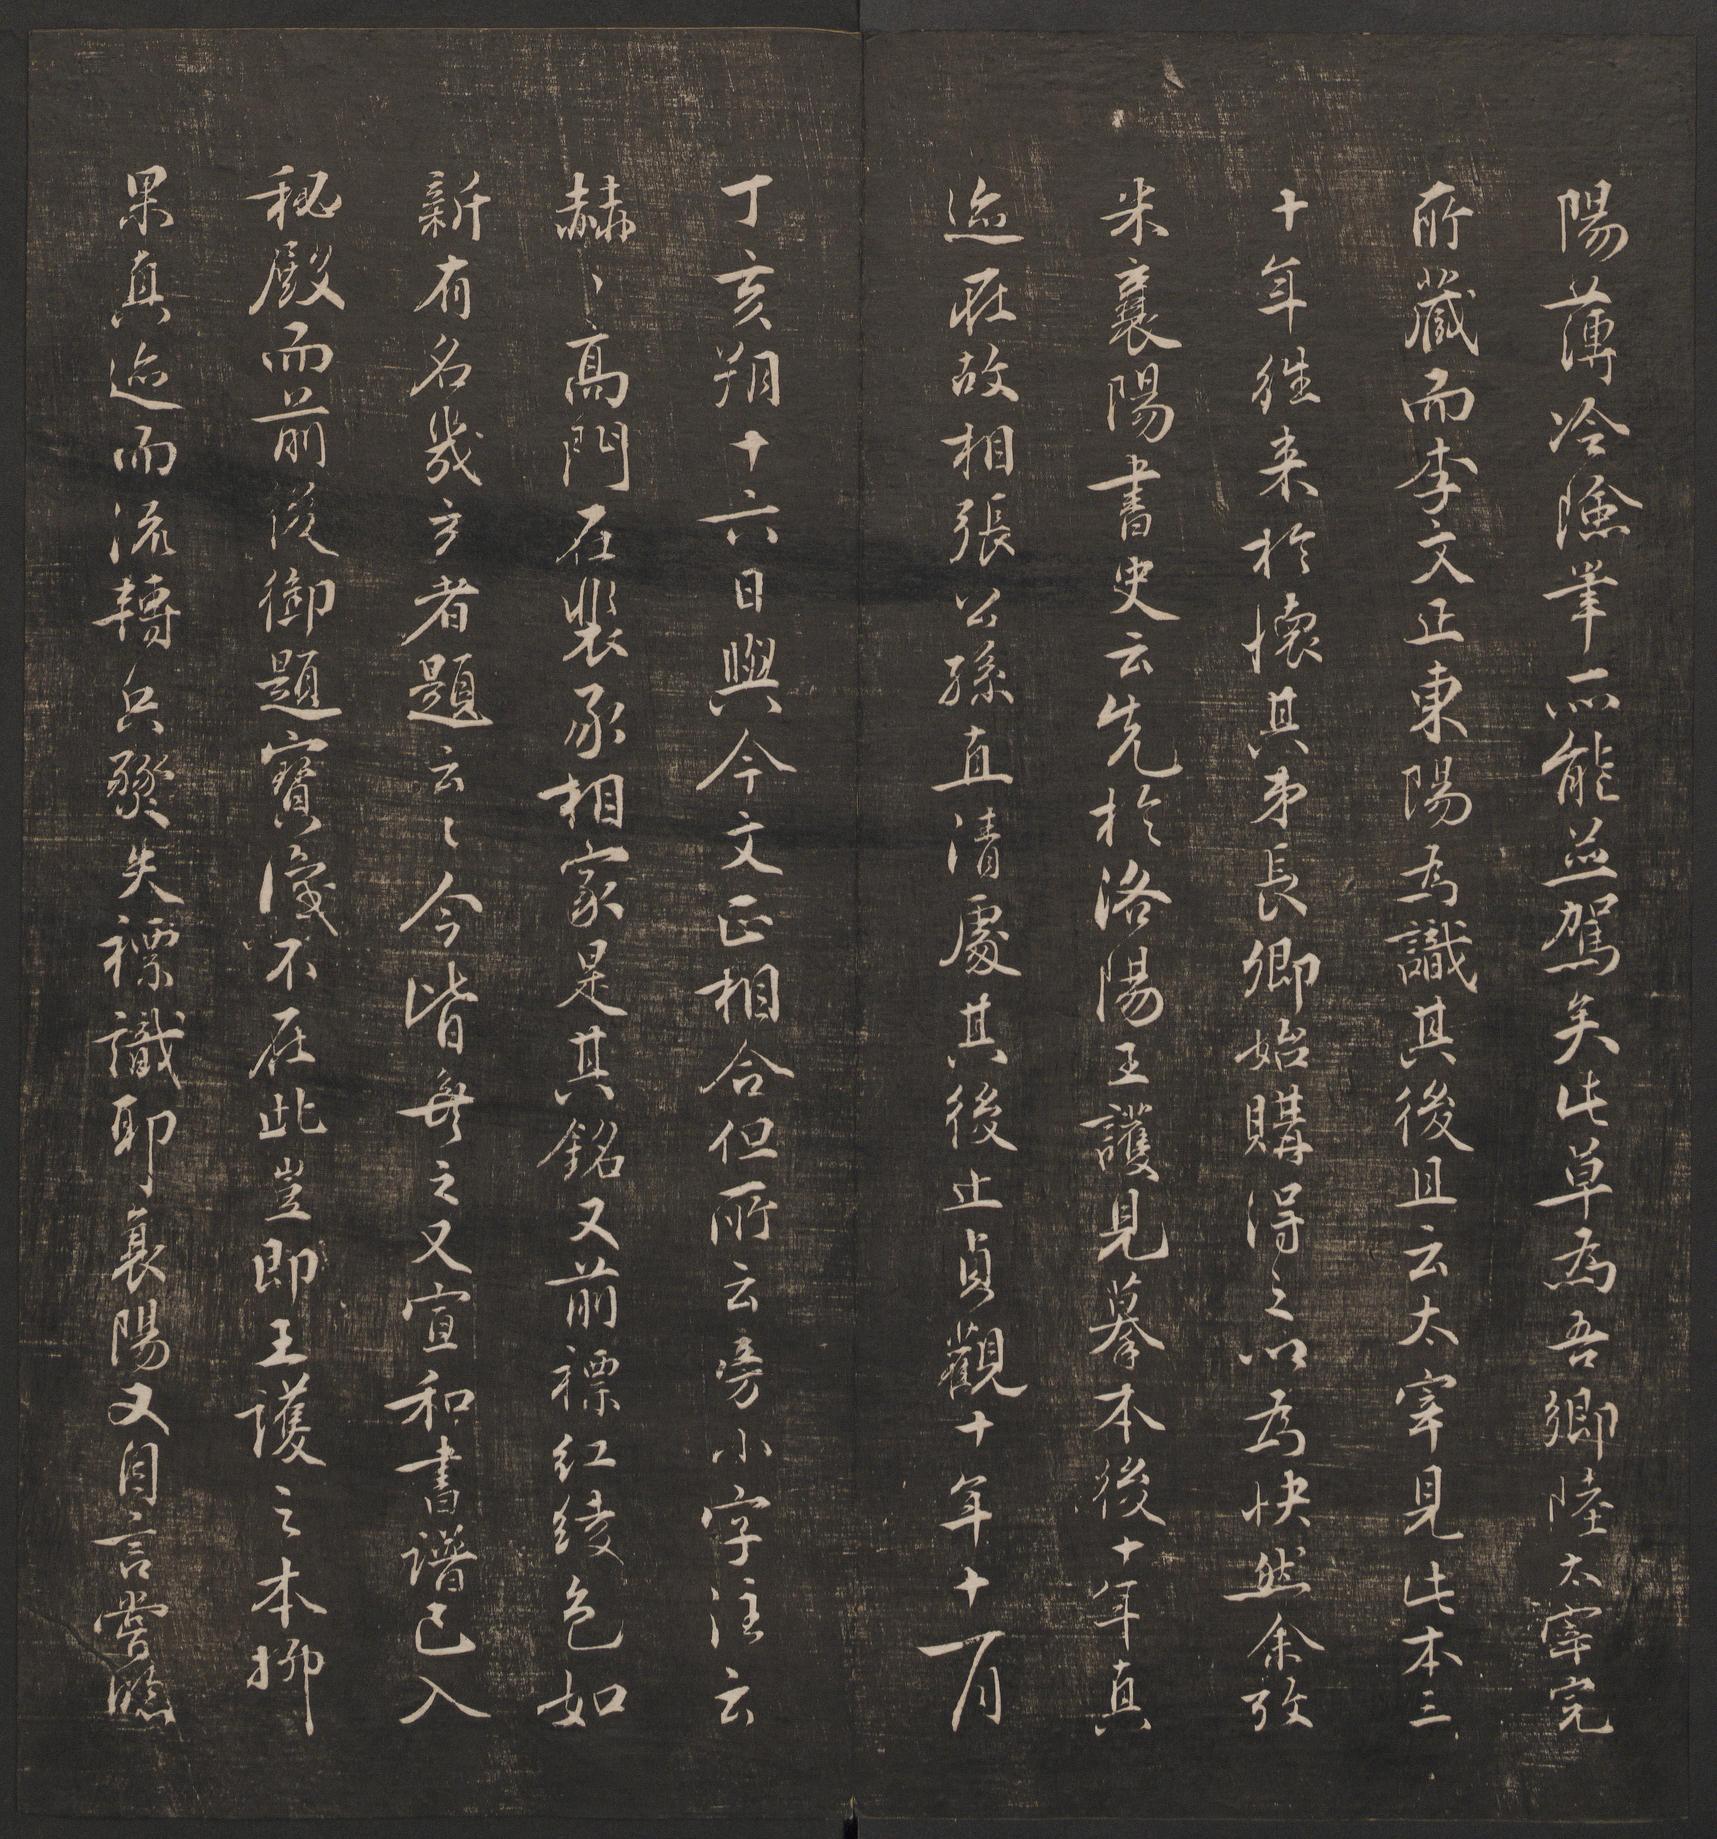 陽薄冷險筆所能並駕矣此草為吾鄉陸太宰完
所藏而李文正東陽為識其後且云太宰見此本三
十年往来於懷其弟長卿始購得之以為快然余攷
米襄陽書史云先於洛陽王護見摹本後十年真
迹在故相張公孫直清處其後止貞觀十年十一月
丁亥朔十六日與今文正相合但所云旁小字注云
赫〻高門在裴丞相家是其銘又前褾紅綾色如
新有名幾玄者題云〻今皆無之又宣和書譜已入
秘殿而前後御題寶識不在此豈即王護之本抑
果真迹而流轉兵燹失褾識耶襄陽又自言嘗臨